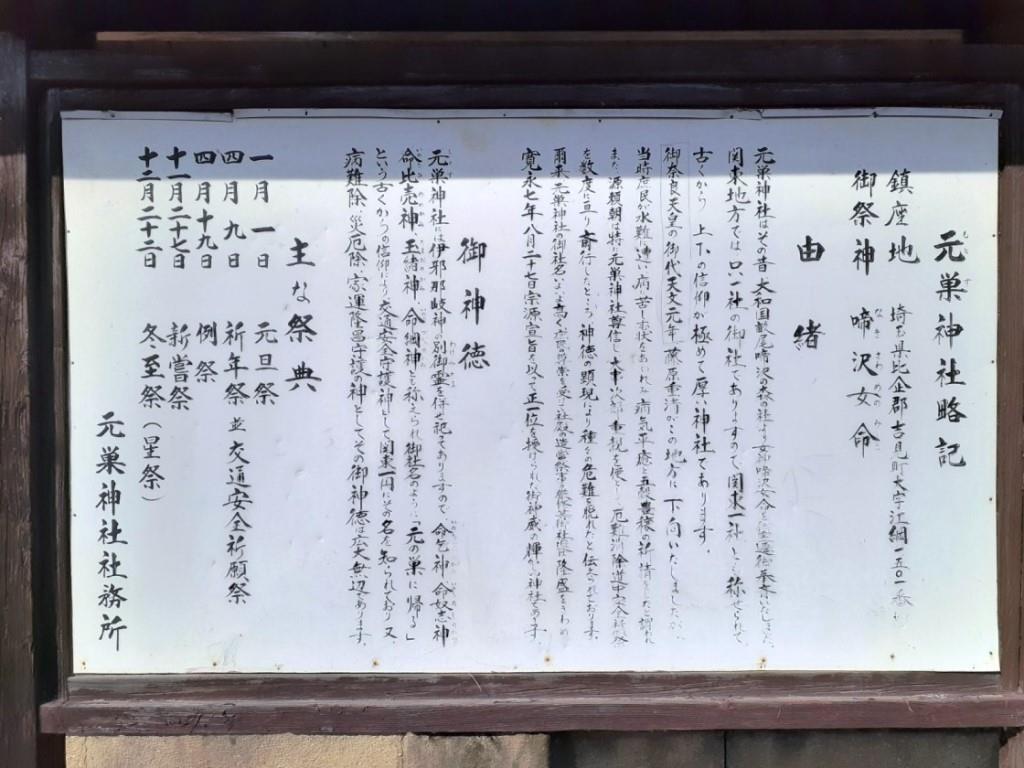 元巣神社略記
鎮座地　埼玉県比企郡吉見町大字江綱一五〇一番
御祭神　啼沢女命
由緒
元巣神社はその昔、大和国畝尾啼沢の森
関東地方では只一社の御社でありますので関東一社とも称せられて、
古くから上下の信仰が極めて厚い神社であります。
御奈良天皇の御代（天文元年）藤原重清がこの地方に下向いたしましたが、
当時庶民が水難に遭い病苦
また源頼朝は特に元巣神社を尊信し
を数度に亘り斎行したところ神徳の顕現により種々の危難を脱れたと伝えられております。
爾来元巣神社御社名
寛永七年八月二十七日宗源宣旨を以って正一位を授けられ御神威の輝かしい神社であります。
御神徳
元巣神社には伊邪那岐神の別御霊を併せ祀てありますので、命乞神、命奴志神
命比売神、玉緒神、命綱神とも称えられ御社名のように「元の巣に帰る」
という古くからの信仰により交通安全守護神として関東一円にその名を知られており又、
病難除、災厄除、家運隆昌守護の神としてその御神徳は広大無辺であります。
主な祭典
一月一日　元旦祭
四月九日　祈年祭並交通安全祈願祭
四月十九日　例祭
十一月二十七日　新嘗祭
十二月二十二日　冬至祭（星祭）
元巣神社社務所